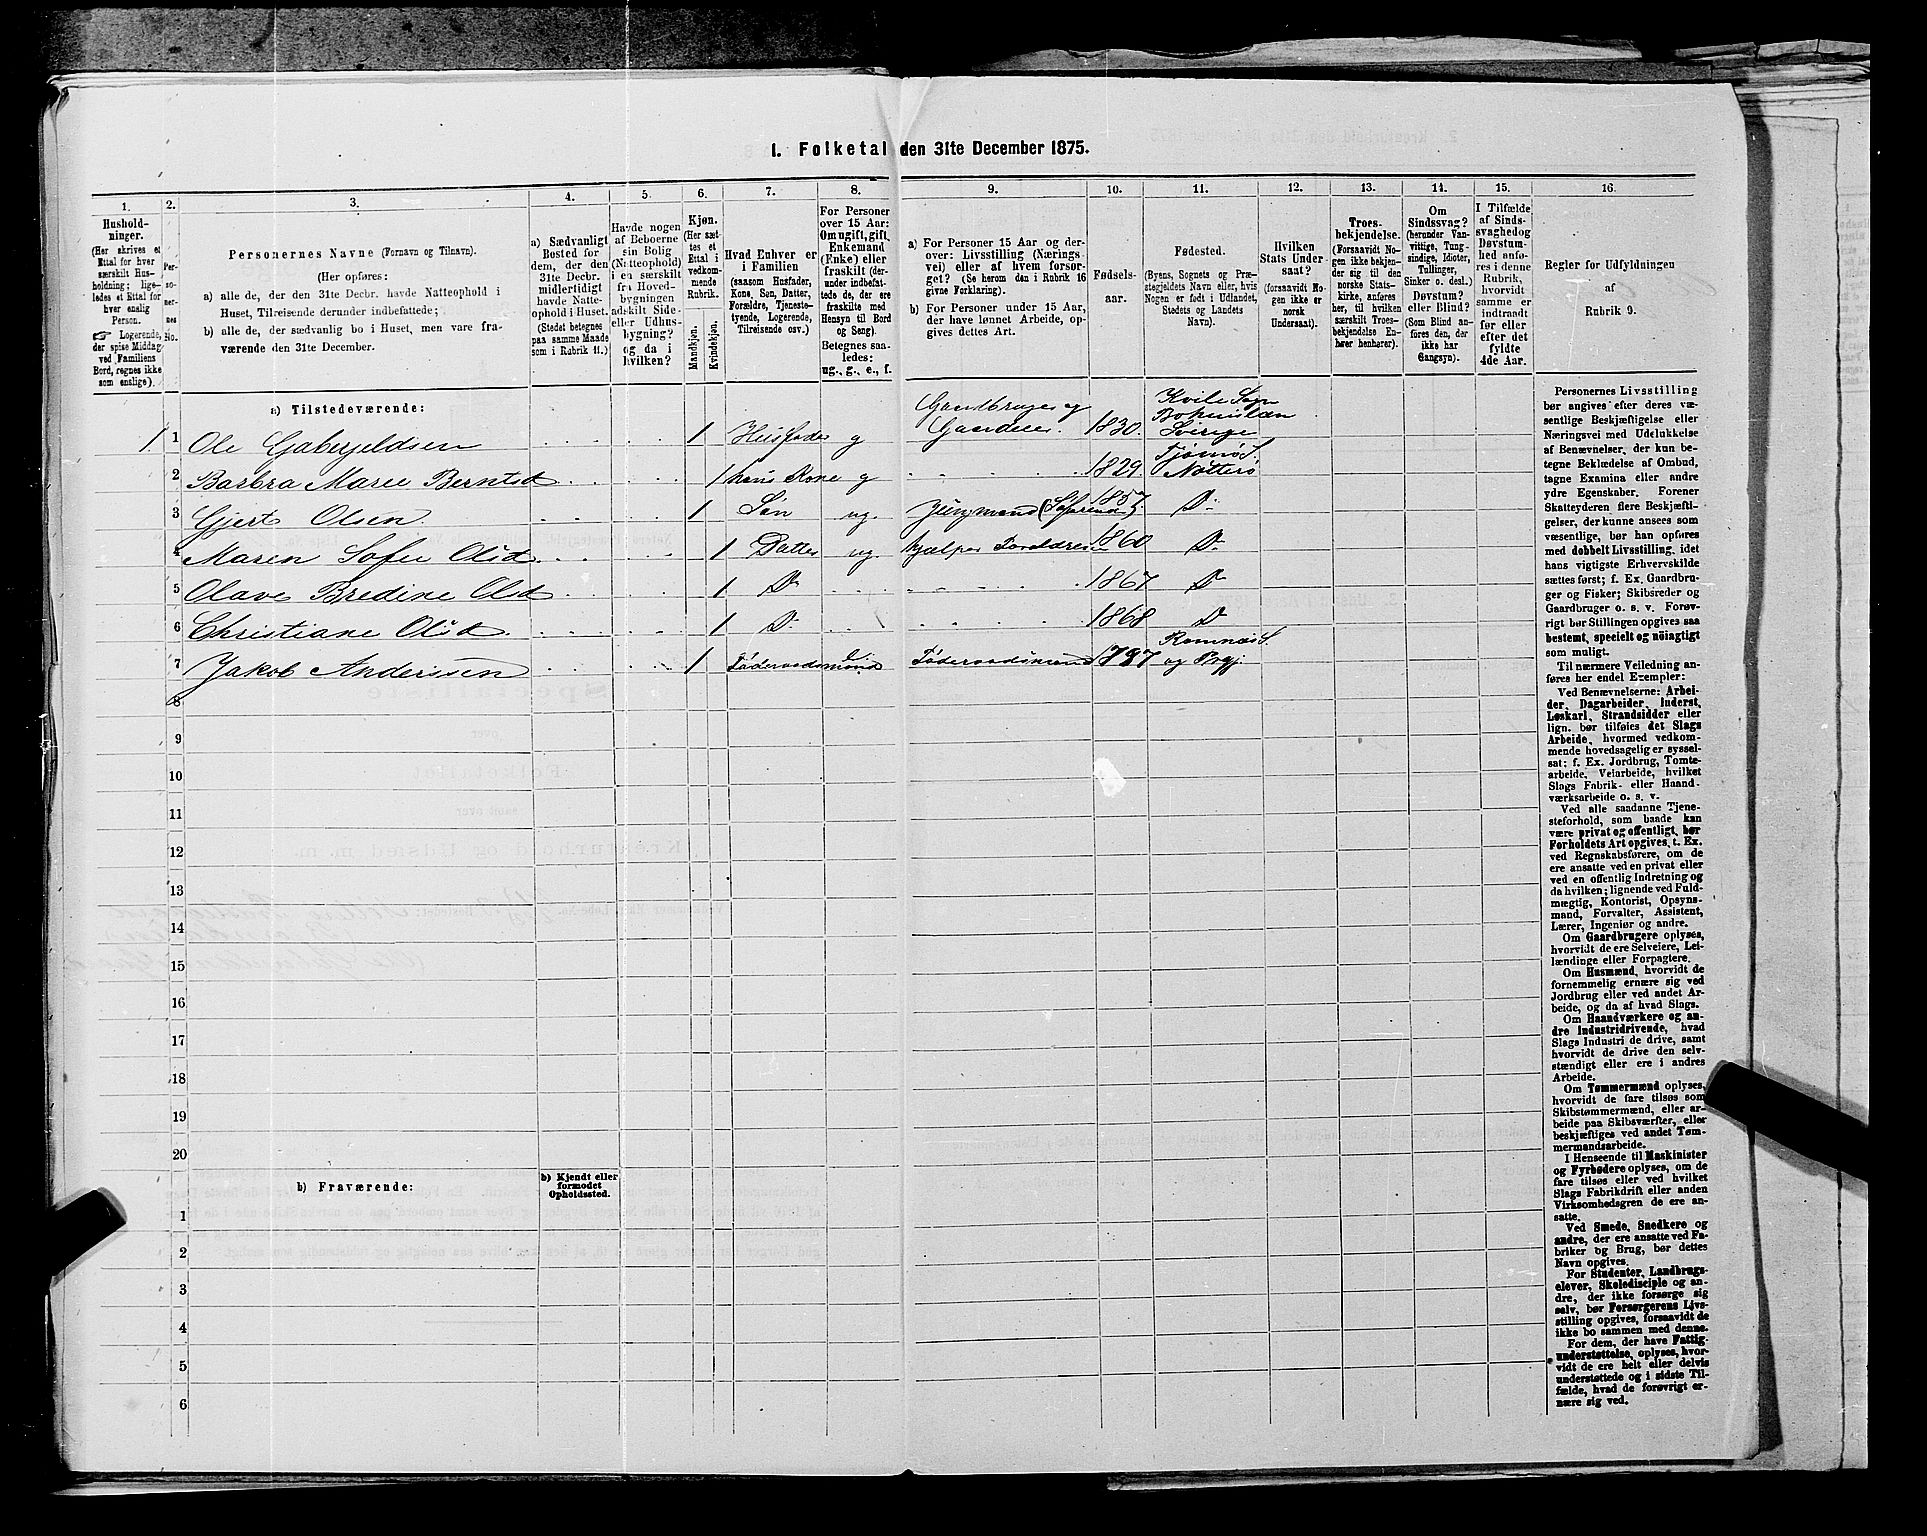 1. Folketal den 31te December 1875.
1. 2. 3. 4. 5. 6. 7. 8. 9. 10. 11. 12. 13. 14. 15. 16.
Hushold-
ninger.
(Her skrives et
Ettal for hver
særskilt Hus-
holdning; lige-
ledes et Ettal for
hver enslig
Person.
☞ Logerende,
der spise Middag
ved Familiens
Bord, regnes ikke
som enslige).
Per-
so-
ner-
nes
No.
Personernes Navne (Fornavn og Tilnavn).
(Her opføres:
a) alle de, der den 31te Decbr. havde Natteophold i
Huset, Tilreisende derunder indbefattede;
b) alle de, der sædvanlig bo i Huset, men vare fra-
værende den 31te December.
a) Sædvanligt
Bosted for
dem, der den
31te Decbr.
midlertidigt
havde Natte-
ophold i Huset.
(Stedet betegnes
paa samme Maade
som i Rubrik 11.)
Havde nogen
af Beboerne
sin Bolig
(Natteophold)
i en særskilt
fra Hoved-
bygningen
adskilt Side-
eller Udhus-
bygning?
og da i
hvilken?
Kjøn.
(Her sæt-
tes et
Ettal i
vedkom-
mende
Rubrik.
Mandkjøn.
Kvindekjøn.
Hvad Enhver er
i Familien
(saasom Husfader,
Kone, Søn, Datter,
Forældre, Tjeneste-
tyende, Logerende,
Tilreisende osv.)
For Personer
over 15 Aar:
Om ugift, gift,
Enkemand
(Enke) eller
fraskilt (der-
under indbefat-
tede de, der ere
fraskilte med
Hensyn til Bord
og Seng).
Betegnes saa-
ledes:
ug., g., e., f.
a) For Personer 15 Aar og der-
over: Livsstilling (Nærings-
vei) eller af hvem forsør-
get? (Se herom den i Rubrik 16
givne Forklaring).
b) For Personer under 15 Aar,
der have lønnet Arbeide, op-
gives dettes Art.
Fødsels-
aar.
Fødested.
(Byens, Sognets og Præ-
stegjeldets Navn eller, hvis
Nogen er født i Udlandet,
Stedets og Landets
Navn).
Hvilken
Stats Under-
saat?
(forsaavidt No-
gen ikke er
norsk
Undersaat).
Troes-
bekjendelse.
(Forsaavidt No-
gen ikke bekjen-
der sig til den
norske Stats-
kirke, anføres
her, til hvilken
særskilt Troes-
bekjendelse En-
hver henhører).
Om
Sindssvag?
(herunder Van-
vittige, Tung-
sindige, Idioter,
Tullinger,
Sinker o. desl.)
Døvstum?
eller Blind?
(Som Blind an-
føres den, der
ikke har
Gangsyn).
I Tilfælde
af Sinds-
svaghed og
Døvstum-
hed anfø-
res i denne
Rubrik,
hvorvidt
samme er
indtraadt
før eller
efter det
fyldte
4de Aar.
Regler for Udfyldningen
af
Rubrik 9.
a) Tilstedeværende:
1. 1 Ole Gabrjeldsen 1 Husfader g Gaardbruger og Gaardeier. 1830. Kvile Sogn Bohuslæn Sverige
2 Barbra Marie Berntsd 1 hans Kone g 1829. Tjømø S. Nøtterø
3 Gjert Olsen. 1 Søn ug. Jungmand 1857. Do
4 Maren Sofie Olsd. 1 Datter ug hjælper Forældrene 1860 Do
5 Olave Bredine Olsd 1 Do 1867 Do
6 Christiane Olsd. 1 Do 1868 Do
7 Jakob Anderssen 1 Føderaadsmand e. Føderaadsmand 1787 Ramnæs S. og Prgj.
8
9
10
11
12
13
14
15
16
17
18
19
20
b) Fraværende:
b) Kjendt eller
formodet
Opholdssted.
1
2
3
4
5
6
Personernes Livsstilling
bør angives efter deres væ-
sentlige Beskjæftigelse eller
Næringsvei med Udelukkelse
af Benævnelser, der kun be-
tegne Beklædelse af Ombud,
tagne Examina eller andre
ydre Egenskaber. Forener
Skatteyderen flere Beskjæfti-
gelser, der kunne ansees som
væsentlige, bør han opføres
med dobbelt Livsstilling, idet
hans vigtigste Erhvervskilde
sættes først; f. Ex. Gaardbru-
ger og Fisker; Skibsreder og
Gaardbruger o. s. v. Forøv-
rigt bør Stillingen opgives saa
bestemt, specielt og nöiagtigt
som muligt.
Til nærmere Veiledning an-
føres her endel Exempler:
Ved Benævnelserne: Arbei-
der, Dagarbeider, Inderst,
Løskarl, Strandsidder eller
lign. bør tilføies det Slags
Arbeide, hvormed vedkom-
mende hovedsagelig er syssel-
sat; f. Ex. Jordbrug, Tomte-
arbeide, Veiarbeide, hvilket
Slags Fabrik- eller Haand-
værksarbeide o. s. v.
Ved alle saadanne Tjene-
steforhold, som baade kan
være privat og offentligt, bør
Forholdets Art opgives, t. Ex.
ved Regnskabsførere, om de
ere ansatte ved en privat eller
ved en offentlig Indretning og
da hvilken; lignende ved Fuld-
mægtig, Kontorist, Opsyns-
mand, Forvalter, Assistent,
Lærer, Ingeniør og andre.
Om Gaardbrugere oplyses,
hvorvidt de ere Selveiere, Lei-
lændinge eller Forpagtere.
Om Husmænd, hvorvidt de
fornemmelig ernære sig ved
Jordbrug eller ved andet Ar-
beide, og da af hvad Slags.
Om Haandværkere og an-
dre Industridrivende, hvad
Slags Industri de drive, samt
hvorvidt de drive den selv-
stændigt eller ere i andres
Arbeide.
Om Tømmermænd oplyses,
hvorvidt de fare tilsøs som
Skibstømmermænd, eller ar-
beide paa Skibsværfter, eller
beskjæftiges ved andet Tøm-
mermandsarbeide.
I Henseende til Maskinister
og Fyrbødere oplyses, om de
fare tilsøs eller ved hvilket
Slags Fabrikdrift eller anden
Virksomhedsgren de ere an-
satte.
Ved Smede, Snedkere og
andre, der ere ansatte ved Fa-
briker og Brug, bør dettes
Navn opgives.
For Studenter, Landbrugs-
elever, Skoledisciple og an-
dre, der ikke forsørge sig
selv, bør Forsørgerens Livs-
stilling opgives, forsaavidt de
ikke bo sammen med denne.
For dem, der have Fattig-
understøttelse, oplyses, hvor-
vidt de ere helt eller delvis
understøttede og i sidste Til-
fælde, hvad de forøvrigt er-
nære sig ved.